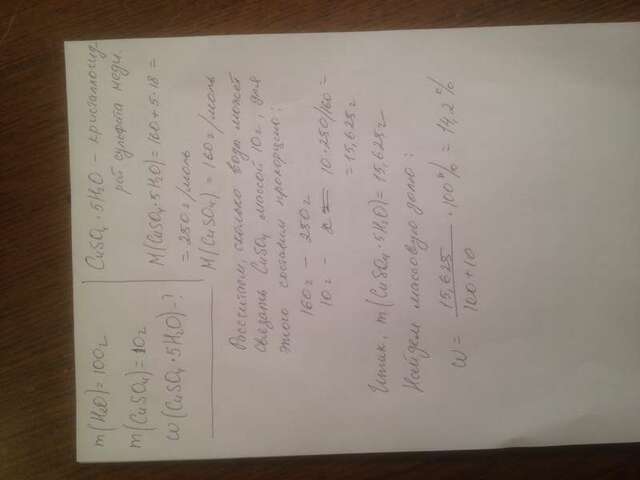 m(H₂O)=100г
m(CuSO₄)=10г
W(CuSO₄·5H₂O)-?
CuSO₄·5H₂O - кристаллогид
рат сульфата меди.
M(CuSO₄·5H₂O)=160+5·18=
=250г/моль
M(CuSO₄)=160г/моль
Рассчитаем, сколько воды может
связать CuSO₄ массой 10г, для
этого составим пропорцию:
160г - 250г
10г - x = 10·250/160=
=15,625г
Итак, m(CuSO₄·5H₂O)=15,625г
Найдем массовую долю:
W = 15,625 / 100+10 ·100% = 14,2%